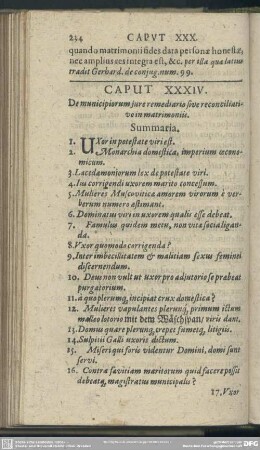 224 CAPVT XXX.
quando matrimonii fides data personæ honestæ,
nec amplius res integra est, &c. per ista quæ latius
tradit Gerhard. de conjug. num. 99.
CAPUT XXXIV.
De municipiorum jure remediario sive reconciliati-
vo in matrimoniis.
Summaria.
1. UXor in potestate viri est.
2. Monarchia domestica, imperium œcono-
micum.
3. Lacedæmoniorum lex de potestate viri.
4. Jus corrigendi uxorem marito concessum.
5. Mulieres Muscovitica amorem virorum è ver-
berum numero æstimant.
6. Dominatus viri in uxorem qualis esse debeat.
7. Famulus quidem metu, non vita socialis gau-
da.
8. Vxor quomodo corrigenda?
9. Inter imbecillitatem & malitiam sexus feminei
discernendum.
10. Deus non vult ut uxor pro adjutorio se præbeat
purgatorium.
11. à quo plerumq; incipiat crux domestica?
12. Mulieres vapulantes plerunq; primum ictum
malleo lotorio mit dem Wäschpan / viris dant.
13. Domus quare plerunq; repet fumeta, litigiis.
14. Sulpitii Galli uxoris dictum.
15. Miseri qui foris videntur Domini, domi sunt
servi.
16. Contra sævitiam maritorum quid facere possit
debeatq; magistratus municipalis?
17. Vxor